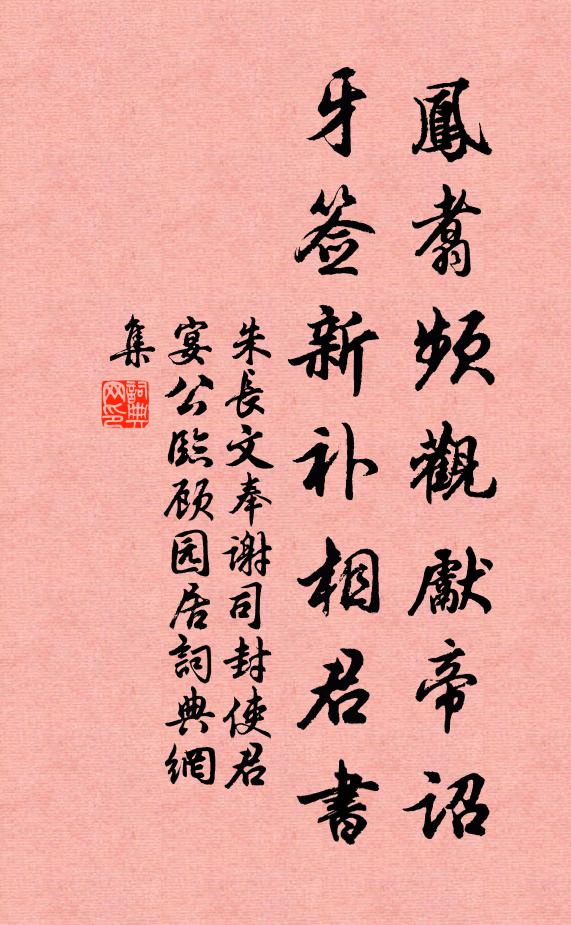 鳳翥频觀獻帝詔
牙签新补相君書
朱長文奉谢司封使君
宴公臨顾园居詞典網
集
詞典
网印